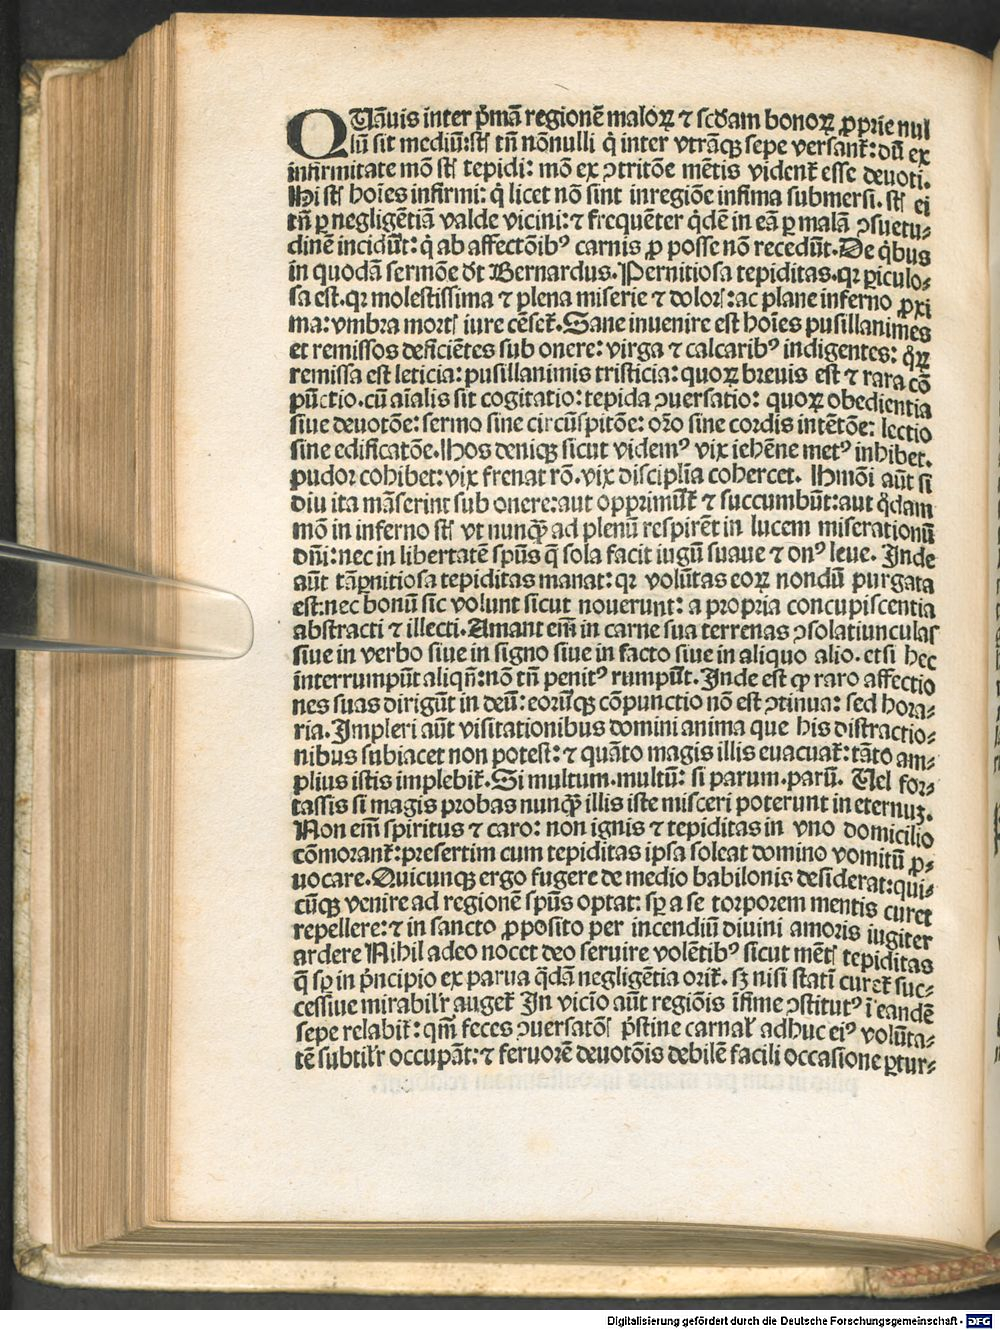 QUāuis inter p̄mā regionē maloꝝ ⁊ scd̄am bonoꝝ ꝓprie nul
lū sit mediū: st̄ tn̄ nōnulli q̇ inter vtrāqꝫ sepe versant᷑: dū ex
infirmitate mō st̄ tepidi: mō ex ↄtritōe mētis vident᷑ esse deuoti.
Hi st̄ hoīes infirmi: q̇ licet nō sint inregiōe infima submersi. st̄ ei
tn̄ ꝑ negligētiā valde vicini: ⁊ frequēter q̇dē in eā ꝑ malā ↄsuetu-
dinē incidūt: q̇ ab affectōibꝰ carnis ꝓ posse nō recedūt. De q̇bus
in quodā sermōe dt̄ Bernardus. Pernitiosa tepiditas. qꝛ ꝑiculo-
sa est. qꝛ molestissima ⁊ plena miserie ⁊ dolorꝭ: ac plane inferno ꝓxi
ma: vmbra mortꝭ iure cēset᷑. Sane inuenire est hoīes pusillanimes
et remissos deficiētes sub onere: virga ⁊ calcaribꝰ indigentes: q̊ꝝ
remissa est leticia: pusillanimis tristicia: quoꝝ breuis est ⁊ rara cō
pūctio. cū aīalis sit cogitatio: tepida ↄuersatio: quoꝝ obedientia
siue deuotōe: sermo sine circūspitōe: or̄o sine cordis intētōe: lectio
sine edificatōe. Hos deniqꝫ sicut videmꝰ vix iehēne metꝰ inhibet.
pudor cohibet: vix frenat rō. vix disciplīa cohercet. Hmōi aūt si
diu ita māserint sub onere: aut opprimūt᷑ ⁊ succumbūt: aut q̊dam
mō in inferno st̄ vt nunqꝫ̄ ad plenū respirēt in lucem miserationū
dn̄i: nec in libertatē spūs q̄ sola facit iugū suaue ⁊ onꝰ leue. Inde
aūt tāꝑnitiosa tepiditas manat: qꝛ volūtas eoꝝ nondū purgata
est: nec bonū sic volunt sicut nouerunt: a propria concupiscentia
abstracti ⁊ illecti. Amant em̄ in carne sua terrenas ↄsolatiunculas
siue in verbo siue in signo siue in facto siue in aliquo alio. et si hec
interrumpūt aliqn̄: nō tn̄ penitꝰ rumpūt. Inde est ꝙ raro affectio
nes suas dirigūt in deū: eorūqꝫ cōpunctio nō est ↄtinua: sed hora-
ria. Impleri aūt visitationibus domini anima que his distractio-
nibus subiacet non potest: ⁊ quāto magis illis euacuat᷑: tāto am-
plius istis implebit᷑. Si multum. multū: si parum. parū. Uel for-
tassis si magis probas nunqꝫ̄ illis iste misceri poterunt in eternuꝫ.
Non em̄ spiritus ⁊ caro: non ignis ⁊ tepiditas in vno domicilio
cōmorant᷑: presertim cum tepiditas ipsa soleat domino vomitū ꝓ-
uocare. Quicunqꝫ ergo fugere de medio babilonis desiderat: qui-
cūqꝫ venire ad regionē spūs optat: sꝑ a se torporem mentis curet
repellere: ⁊ in sancto ꝓposito per incendiū diuini amoris iugiter
ardere Nihil adeo nocet deo seruire volētibꝰ sicut mētꝭ tepiditas
q̄ sꝑ in p̄ncipio ex parua q̄dā negligētia orit᷑. sꝫ nisi statī curet᷑ suc-
cessiue mirabilr̄ auget᷑ In vicio aūt regiōis īfime ↄstitutꝰ ī eandē
sepe relabit᷑: qm̄ feces ↄuersatōꝭ p̄stine carnal᷑ adhuc eiꝰ volūta-
tē subtilr̄ occupāt: ⁊ feruorē deuotōis debilē facili occasione ꝑtur-
Digitalisierung gefördert durch die Deutsche Forschungsgemeinschaft - DFG